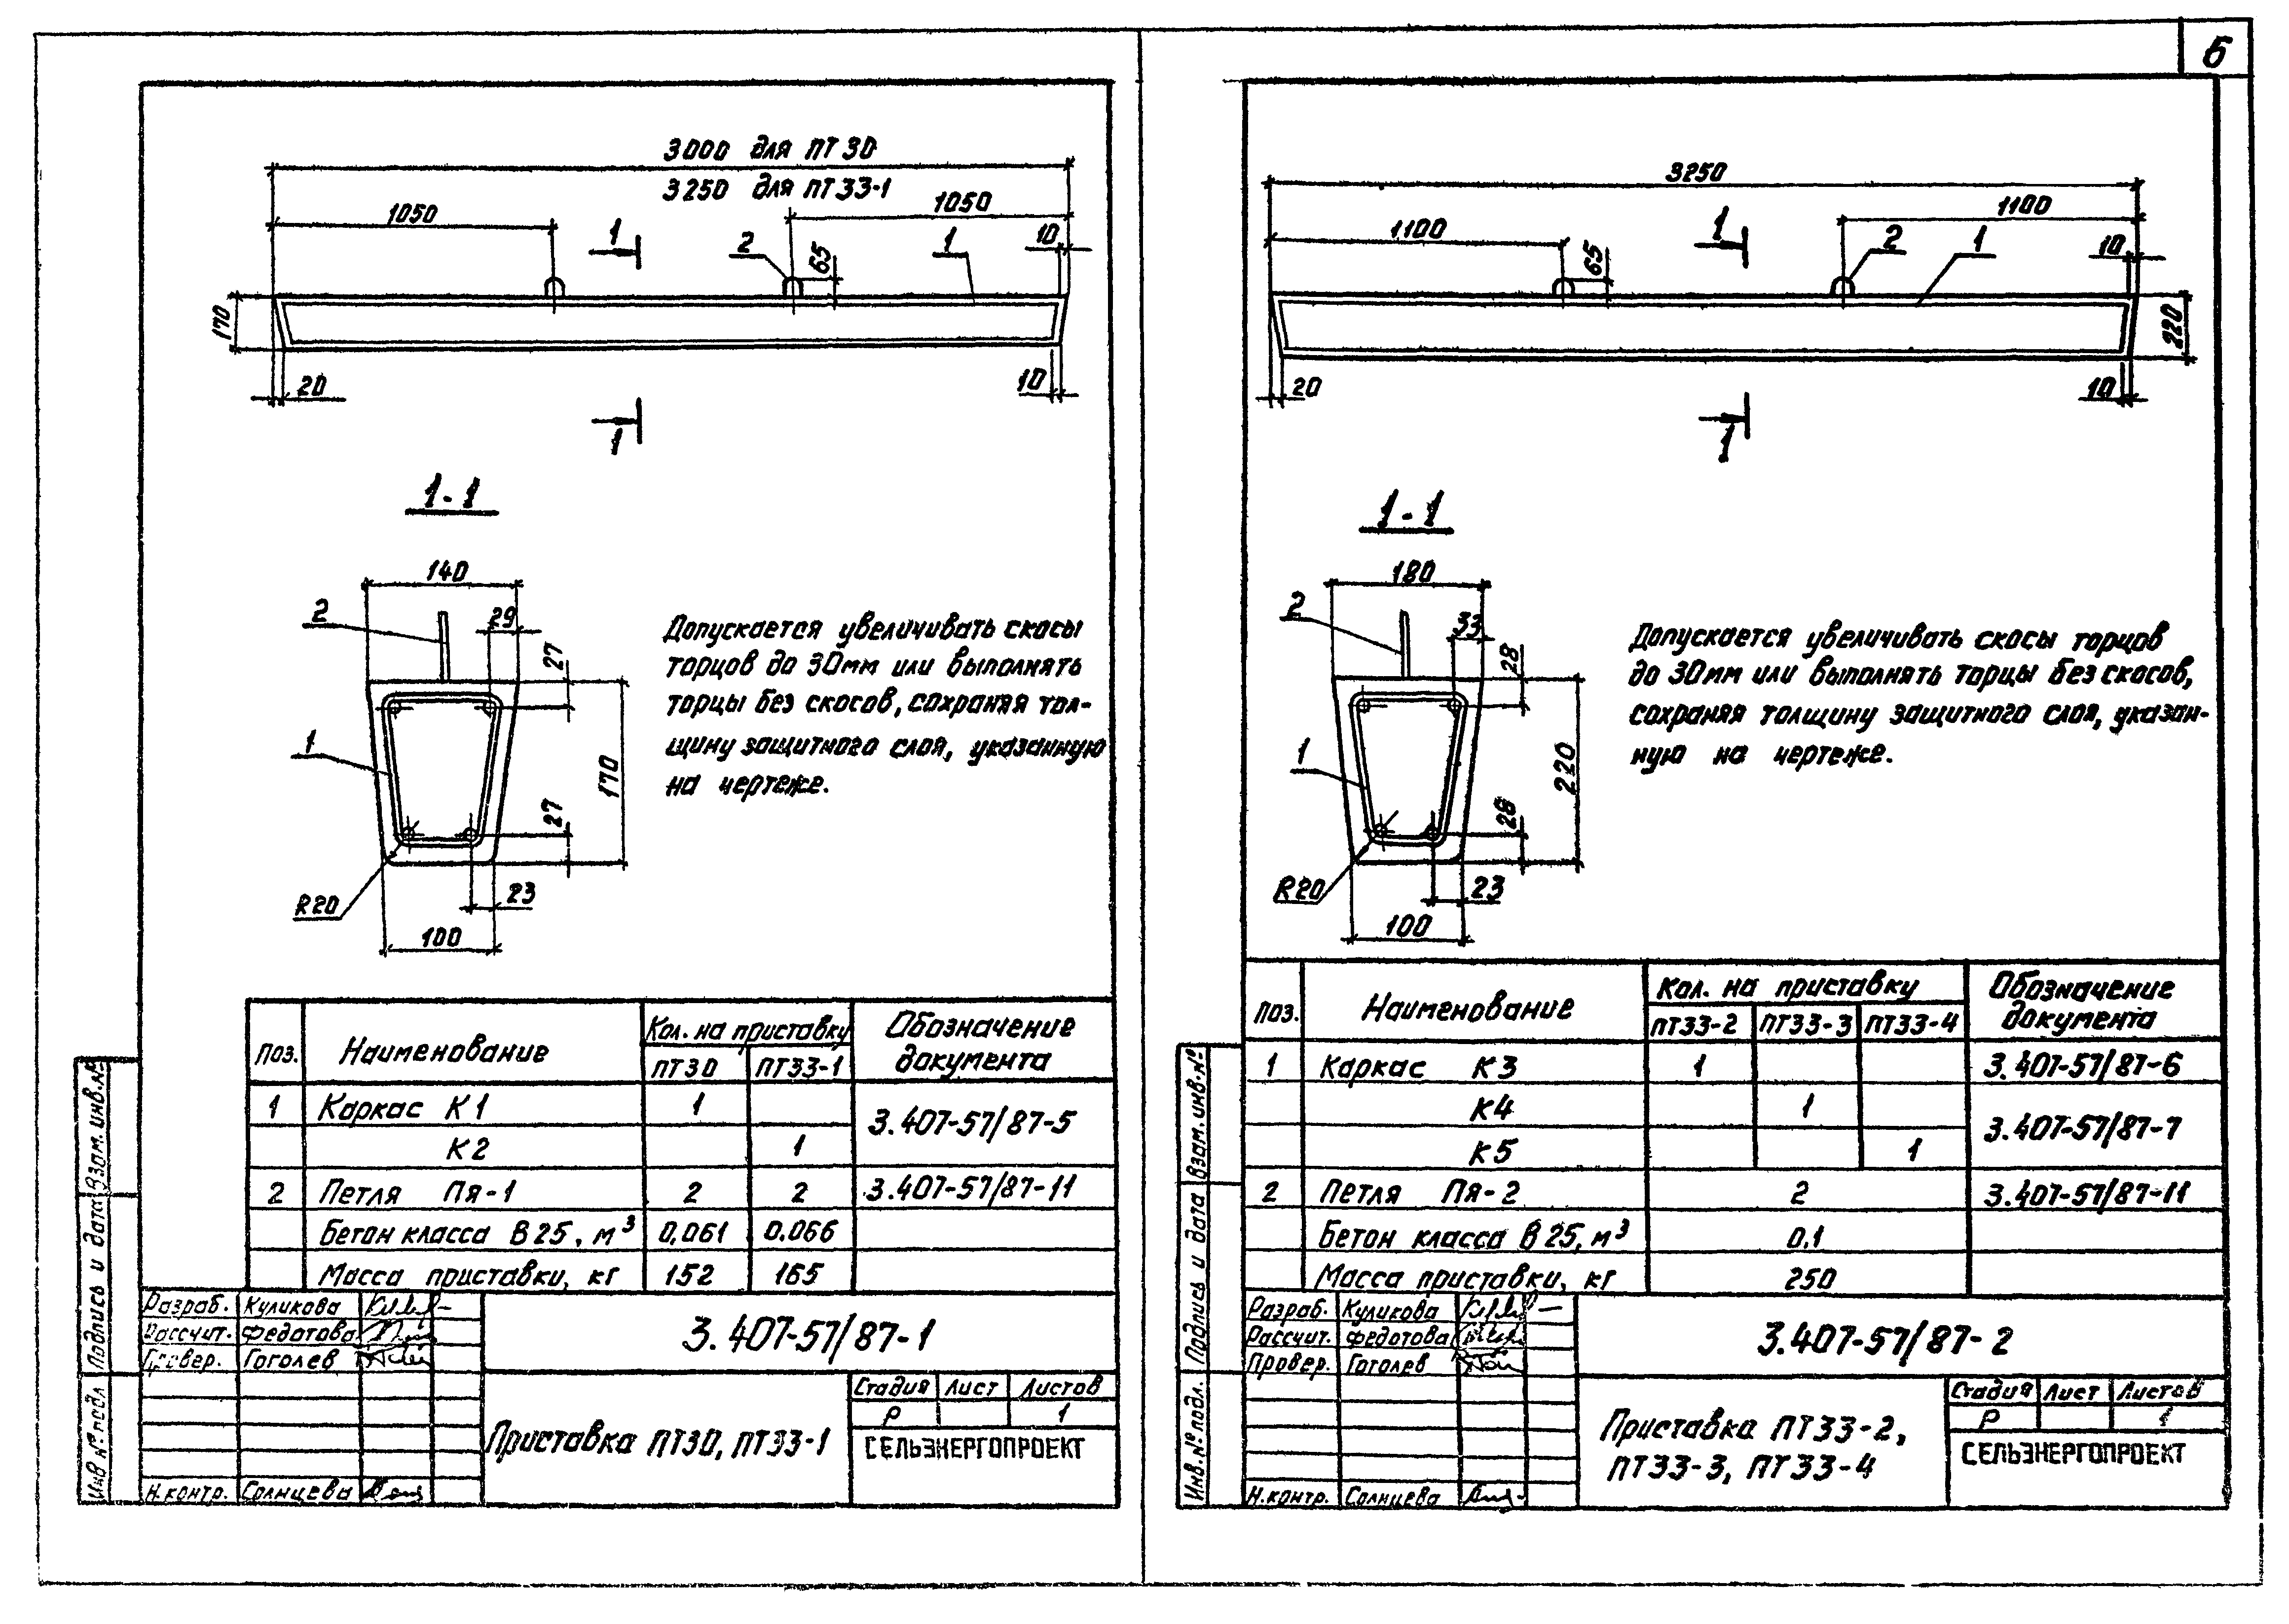 6
3000 для ПТ30
3250 для ПТ33-1
1050
1050
1
2
65
1
10
170
20
10
1
1-1
140
2
29
27
1
170
27
R20
23
100
Допускается увеличивать скосы
торцов до 30мм или выполнять
торцы без скосов, сохраняя тол-
щину защитного слоя, указанную
на чертеже.
Поз. Наименование Кол. на приставку Обозначение документа
ПТ30 ПТ33-1
1 Каркас К1 1 3.407-57/87-5
К2 1
2 Петля Пя-1 2 2 3.407-57/87-11
Бетон класса В25, м³ 0,061 0.066
Масса приставки, кг 152 165
Взам. инв.№
Подпись и дата
Инв № подл
Разраб. Куликова
Рассчит. Федотова
Провер. Гоголев
Н.контр. Солнцева
3.407-57/87-1
Приставка ПТ30, ПТ33-1
Стадия Лист Листов
Р 1
СЕЛЬЭНЕРГОПРОЕКТ
3250
1100
1100
1
65
2
1
10
220
20
10
1
1-1
180
2
33
28
1
220
28
R20
23
100
Допускается увеличивать скосы торцов
до 30мм или выполнять торцы без скосов,
сохраняя толщину защитного слоя, указан-
ную на чертеже.
Поз. Наименование Кол. на приставку Обозначение документа
ПТ33-2 ПТ33-3 ПТ33-4
1 Каркас К3 1 3.407-57/87-6
К4 1 3.407-57/87-7
К5 1
2 Петля Пя-2 2 3.407-57/87-11
Бетон класса В25, м³ 0,1
Масса приставки, кг 250
Взам. инв.№
Подпись и дата
Инв.№ подл.
Разраб. Куликова
Рассчит. Федотова
Провер. Гоголев
Н.контр. Солнцева
3.407-57/87-2
Приставка ПТ33-2,
ПТ33-3, ПТ33-4
Стадия Лист Листов
Р 1
СЕЛЬЭНЕРГОПРОЕКТ